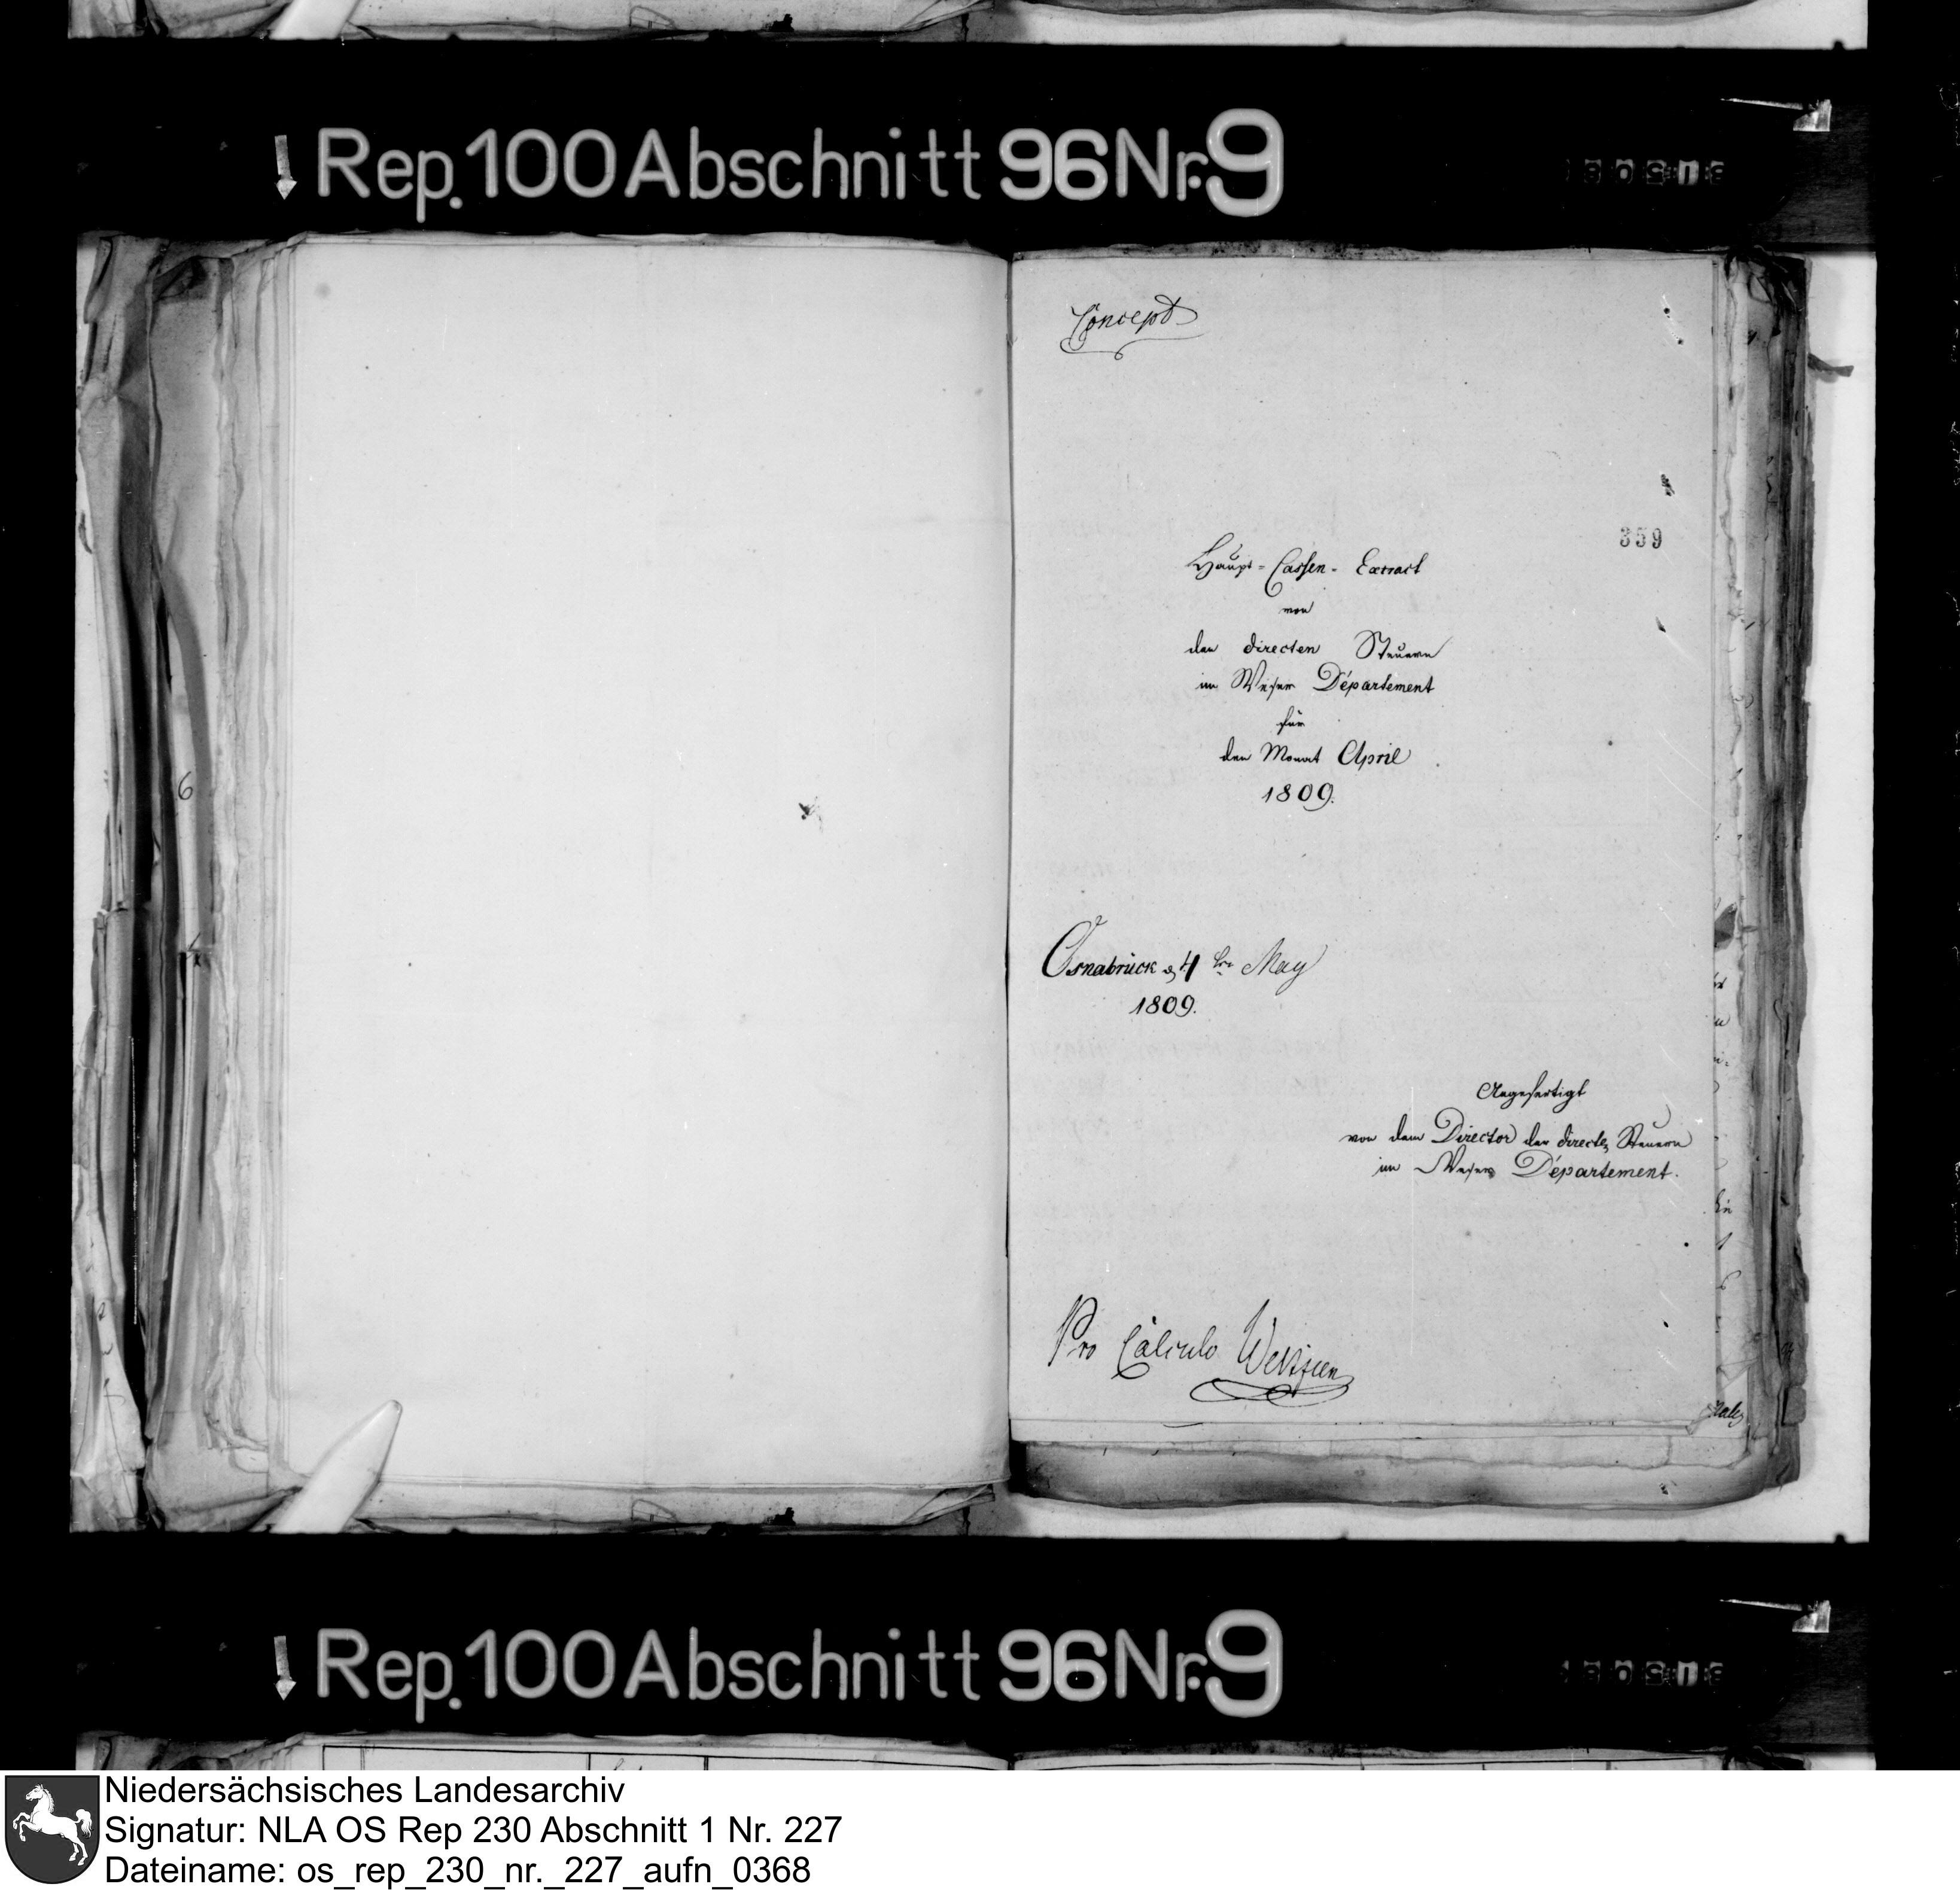 Rep. 100 Abschnitt 96 Nr. 9
Concept
359
Haupt-Cassen-Extract
von
den directen Steuern
im Weser Département
für
den Monat April
1809.
Osnabrück d 4 ten May
1809.
Angefertigt
von dem Director der directen Steuern
im Weser Département.
Pro Calculo
6
Rep. 100 Abschnitt 96 Nr. 9
Niedersächsisches Landesarchiv
Signatur: NLA OS Rep 230 Abschnitt 1 Nr. 227
Dateiname: os_rep_230_nr._227_aufn_0368